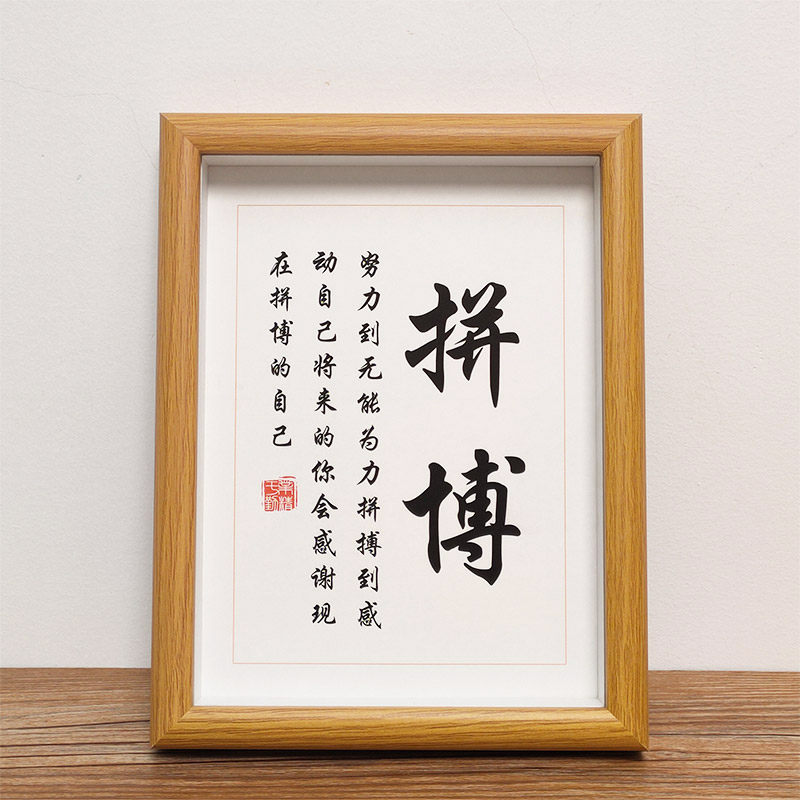 拼博
努力到无能为力拼搏到感
动自己将来的你会感谢现
在拼博的自己
业精于勤